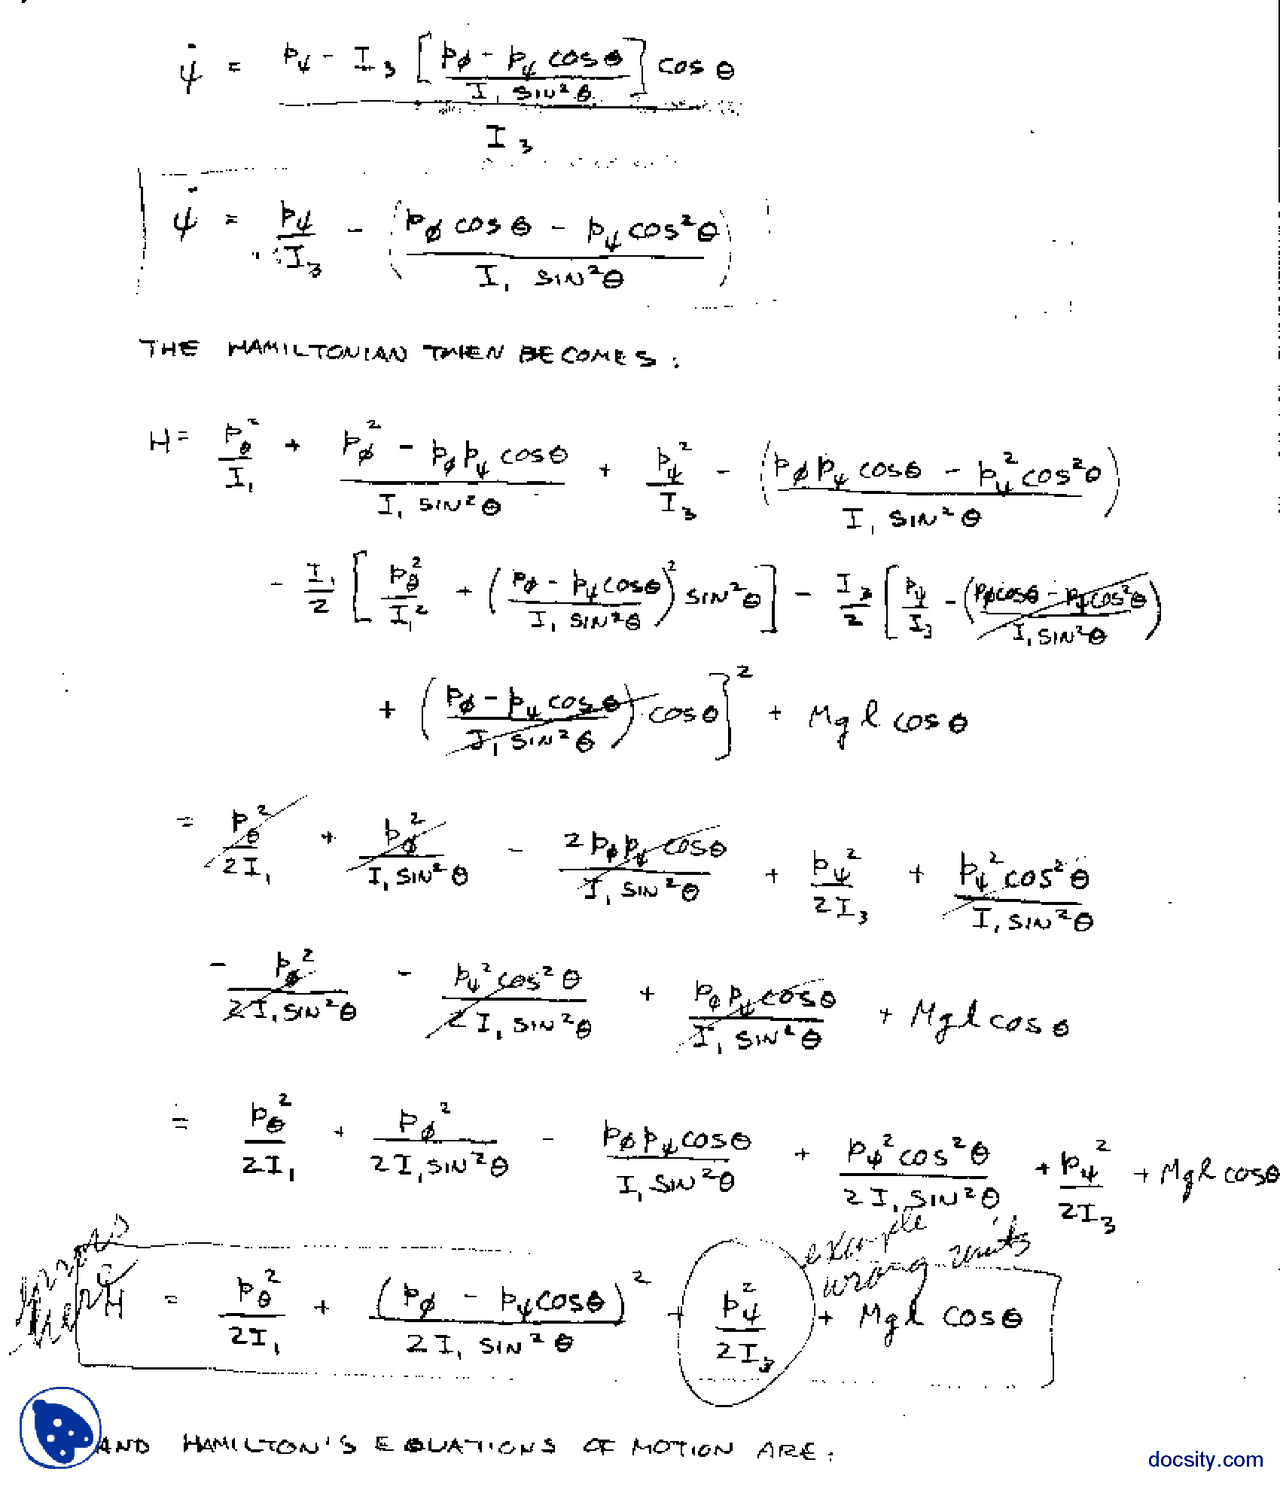 ψ̇ = (p_ψ - I₃ [(p_φ - p_ψ cosθ) / (I₁ SIN²θ)] cosθ) / I₃
ψ̇ = p_ψ/I₃ - ((p_φ cosθ - p_ψ cos²θ) / (I₁ SIN²θ))
THE HAMILTONIAN THEN BECOMES:
H = p_θ²/I₁ + (p_φ² - p_φ p_ψ cosθ)/(I₁ SIN²θ) + p_ψ²/I₃ - ((p_φ p_ψ cosθ - p_ψ² cos²θ)/(I₁ SIN²θ))
- I₁/2 [p_θ²/I₁² + ((p_φ - p_ψ cosθ)/(I₁ SIN²θ))² SIN²θ] - I₃/2 [p_ψ/I₃ - ((p_φ cosθ - p_ψ cos²θ)/(I₁ SIN²θ))
+ ((p_φ - p_ψ cosθ)/(I₁ SIN²θ)) cosθ]² + Mgl cosθ
= p_θ²/2I₁ + p_φ²/(I₁ SIN²θ) - 2p_φ p_ψ cosθ/(I₁ SIN²θ) + p_ψ²/2I₃ + p_ψ² cos²θ/(I₁ SIN²θ)
- p_φ²/(2I₁ SIN²θ) - p_ψ² cos²θ/(2I₁ SIN²θ) + p_φ p_ψ cosθ/(I₁ SIN²θ) + Mgl cosθ
= p_θ²/2I₁ + p_φ²/(2I₁ SIN²θ) - p_φ p_ψ cosθ/(I₁ SIN²θ) + p_ψ² cos²θ/(2I₁ SIN²θ) + p_ψ²/2I₃ + Mgl cosθ
example
wrong units
H = p_θ²/2I₁ + (p_φ - p_ψ cosθ)²/(2I₁ SIN²θ) + p_ψ²/2I₃ + Mgl cosθ
AND HAMILTON'S EQUATIONS OF MOTION ARE:
docsity.com